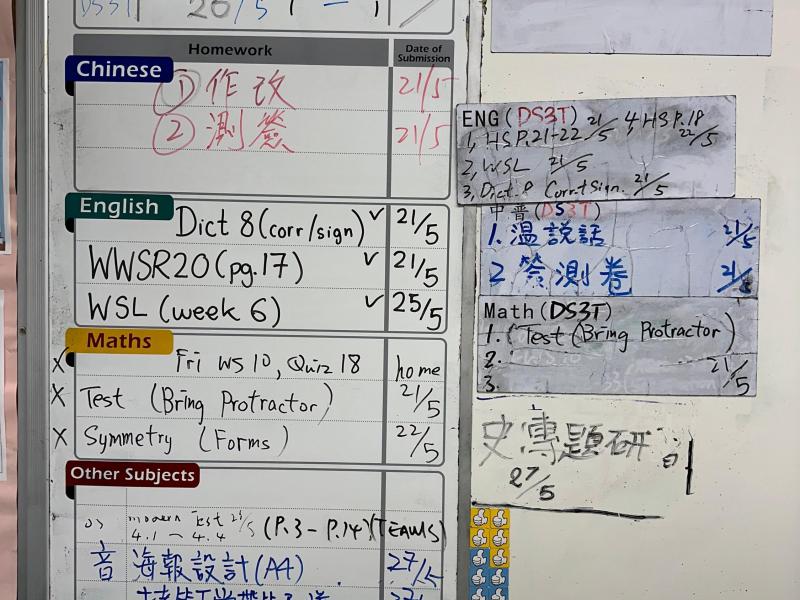 DS3T 20/5
Homework Date of Submission
Chinese
① 作改 21/5
② 測簽 21/5
English
Dict 8 (corr/sign) ✓ 21/5
WWSR20 (pg.17) ✓ 21/5
WSL (week 6) ✓ 25/5
Maths
X Fri WS 10, Quiz 18 home
X Test (Bring Protractor) 21/5
X Symmetry (Forms) 22/5
Other Subjects
Test 4.1 – 4.4 (P.3 – P.14) (TEAMS)
音 海報設計 (A4) 27/5
ENG (DS3T) 21/5 4, HS P.18 22/5
1, HS P.21-22
2, WSL 21/5
3, Dict. 8 Corr.+Sign. 21/5
中普 (DS3T)
1. 温説話 21/5
2 簽測卷 21/5
Math (DS3T)
1. Test (Bring Protractor)
2. 21/5
3.
史專題研
27/5